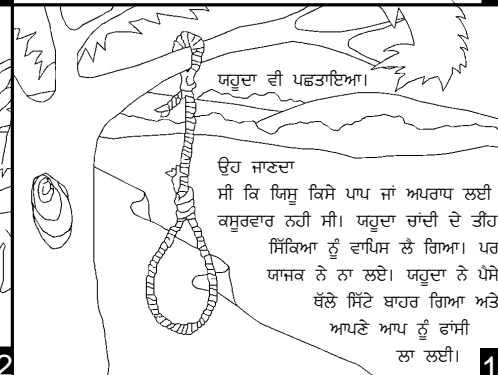 ਯਹੂਦਾ ਵੀ ਪਛਤਾਇਆ।
ਉਹ ਜਾਣਦਾ
ਸੀ ਕਿ ਯਿਸੂ ਕਿਸੇ ਪਾਪ ਜਾਂ ਅਪਰਾਧ ਲਈ
ਕਸੂਰਵਾਰ ਨਹੀ ਸੀ। ਯਹੂਦਾ ਚਾਂਦੀ ਦੇ ਤੀਂਹ
ਸਿੱਕਿਆ ਨੂੰ ਵਾਪਿਸ ਲੈ ਗਿਆ। ਪਰ
ਯਾਜਕ ਨੇ ਨਾ ਲਏ। ਯਹੂਦਾ ਨੇ ਪੈਸੇ
ਥੱਲੇ ਸਿੱਟੇ ਬਾਹਰ ਗਿਆ ਅਤੇ
ਆਪਣੇ ਆਪ ਨੂੰ ਫਾਂਸੀ
ਲਾ ਲਈ।
2
1